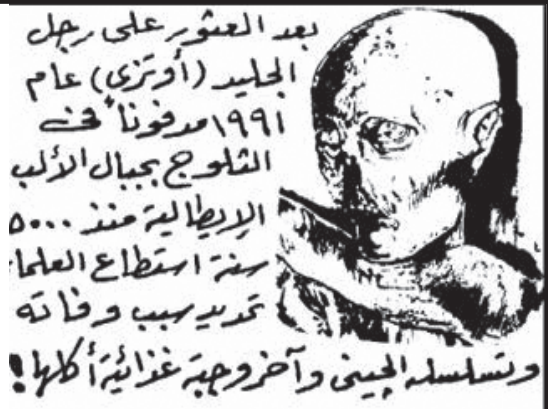 بعد العثور على رجل
الجليد (أوتزى) عام
١٩٩١ مدفوناً فى
الثلوج بجبال الألب
الإيطالية منذ ٥٠٠٠
سنة استطاع العلماء
تحديد سبب وفاته
وتسلسله الجينى وآخر وجبة غذائية أكلها!